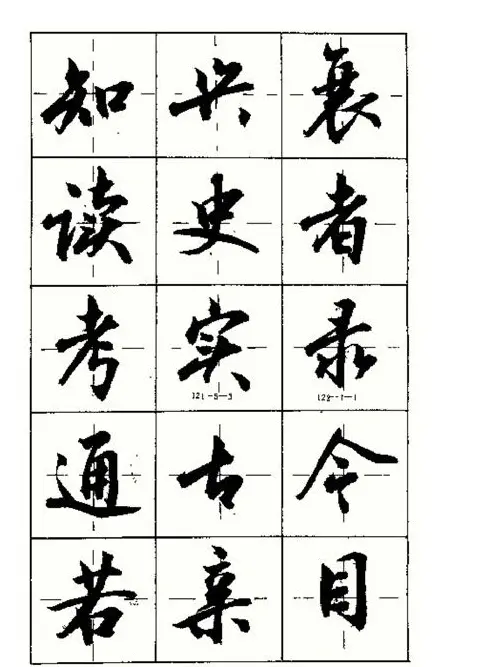 知兴衰
读史者
考实录
121-5-3
通古今
若亲目